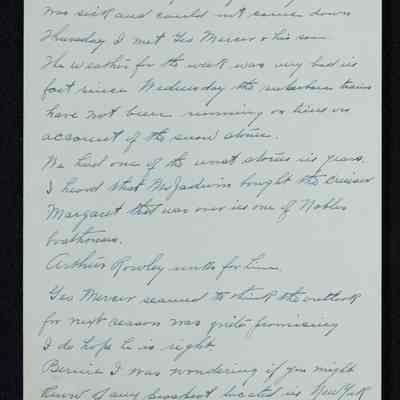 was sick and could not come down
Thursday I met Geo Mercer & his son
The weather for the week was very bad in
fact since Wednesday the suburban trains
have not been running on time on
account of the snow storm.
We had one of the worst storms in years.
I heard that Mr Jadwin bought the cruiser
Margaret that was over in one of Nobles
boathouses.
Arthur Rowley works for him.
Geo Mercer seemed to think the outlook
for next season was quite promising
I do hope he is right.
Bernie I was wondering if you might
know of any prospect located in New York